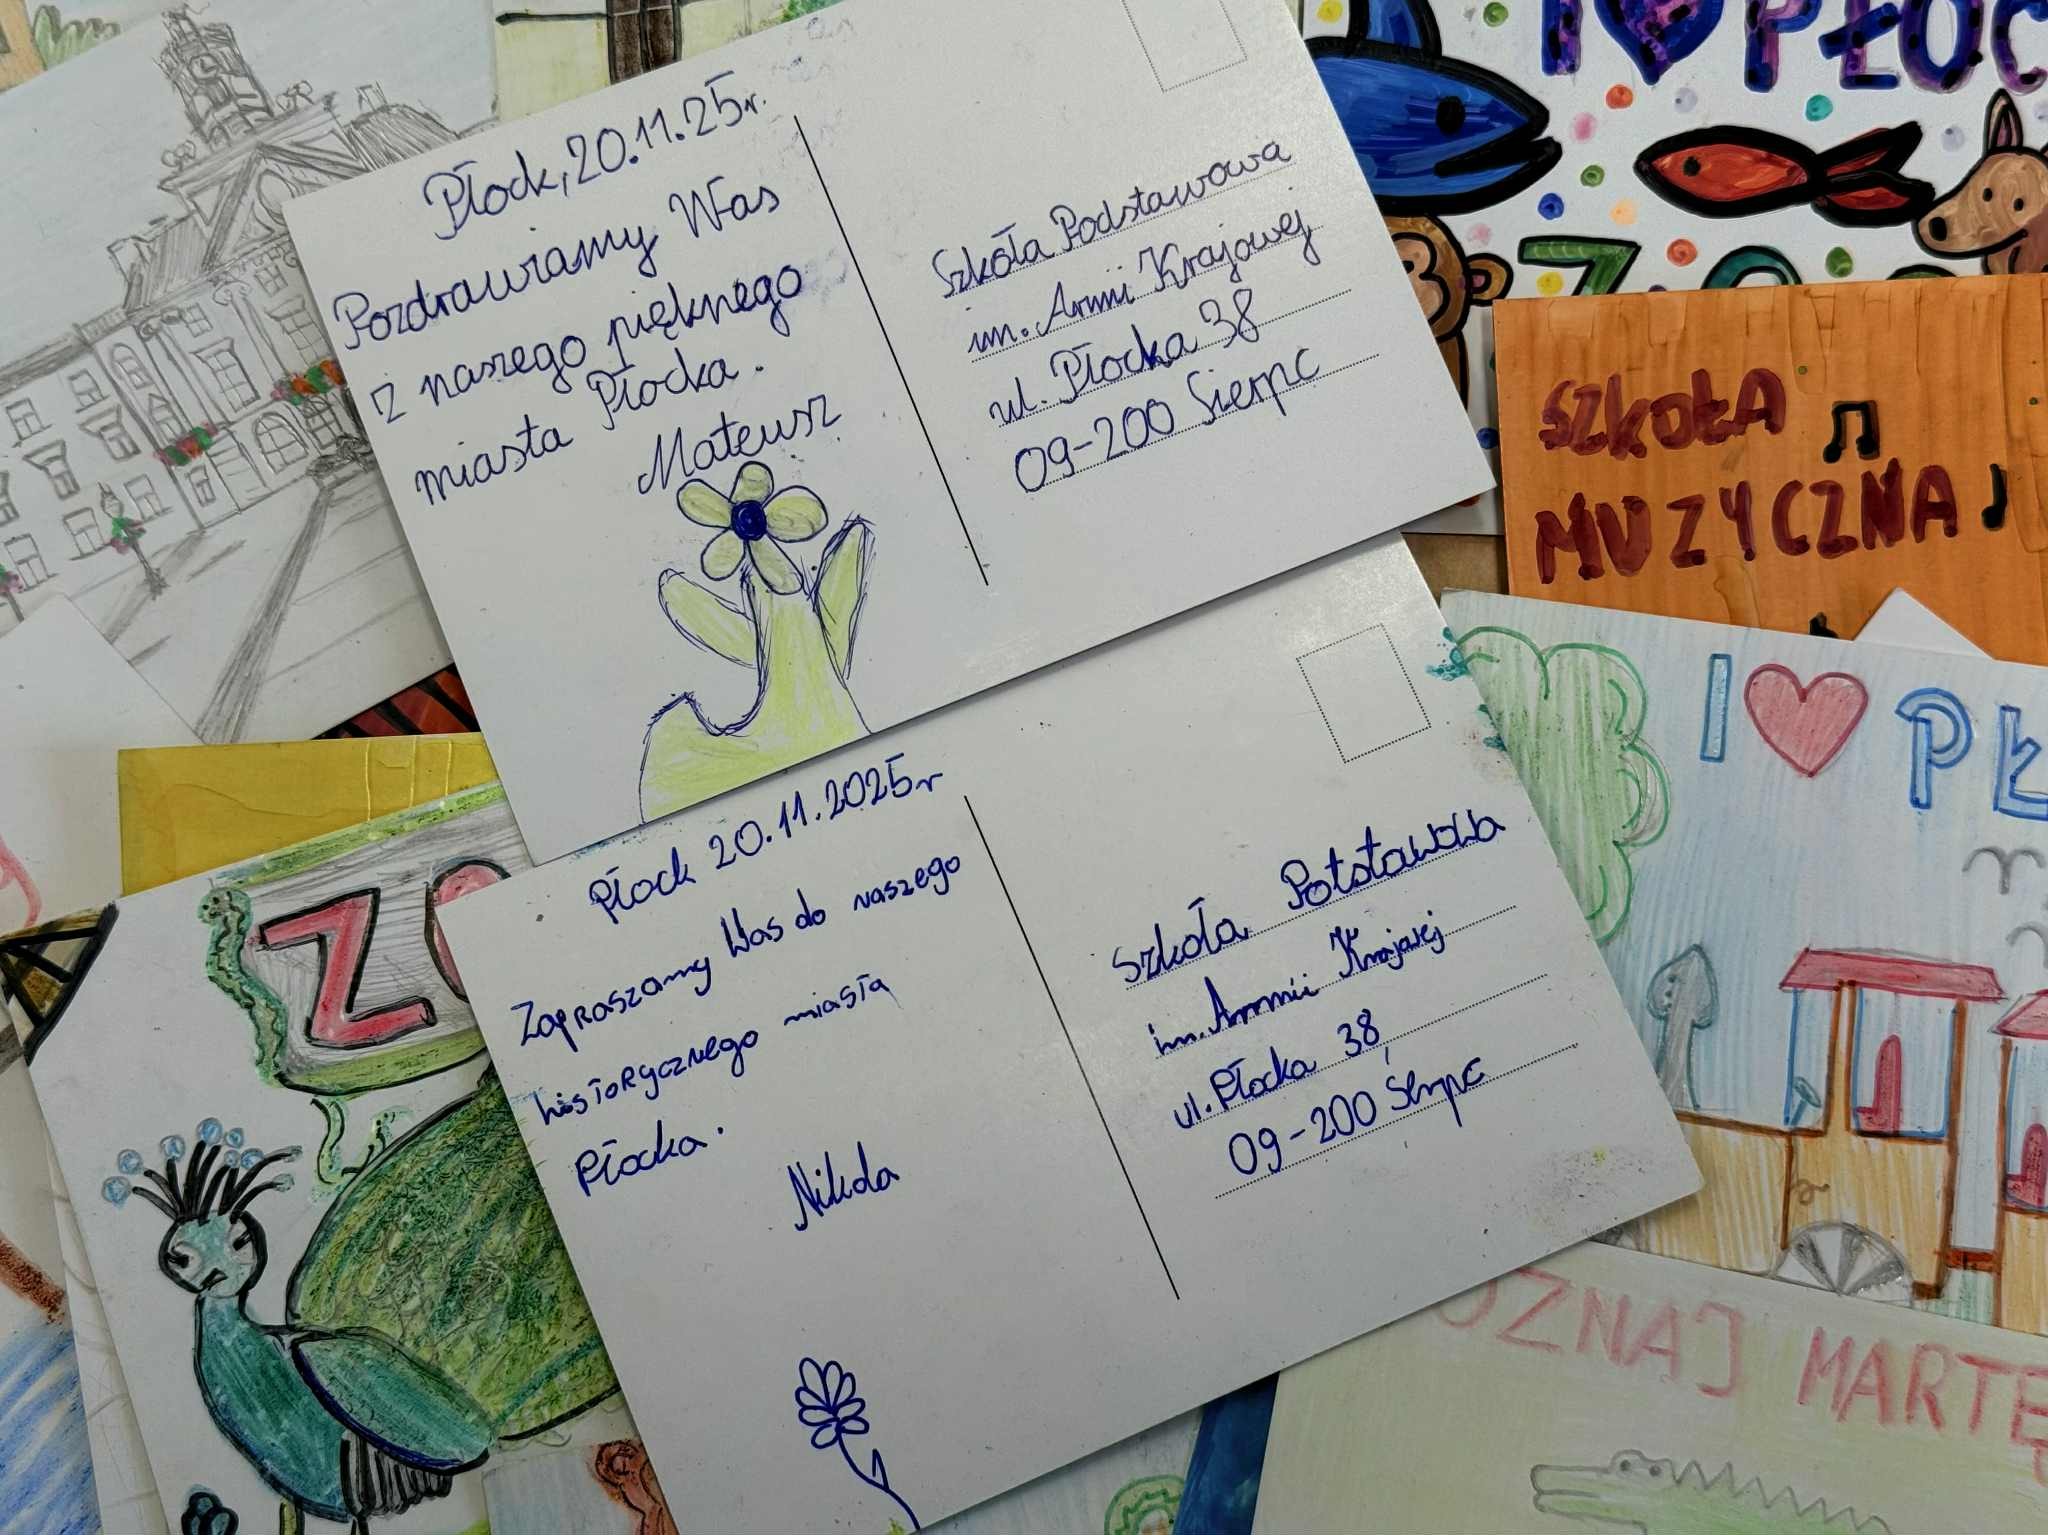 I ♥ PŁOC
Płock, 20.11.25r.
Pozdrawiamy Was
z naszego pięknego
miasta Płocka.
Mateusz
Szkoła Podstawowa
im. Armii Krajowej
ul. Płocka 38
09-200 Sierpc
SZKOŁA
MUZYCZNA
I ♥ PŁ
Płock 20.11.2025r
Zapraszamy Was do naszego
historycznego miasta
Płocka.
Nikola
Szkoła Potstawowa
im. Armii Krajowej
ul. Płocka 38,
09-200 Sierpc
ZO
ZOO
OZNAJ MARTĘ